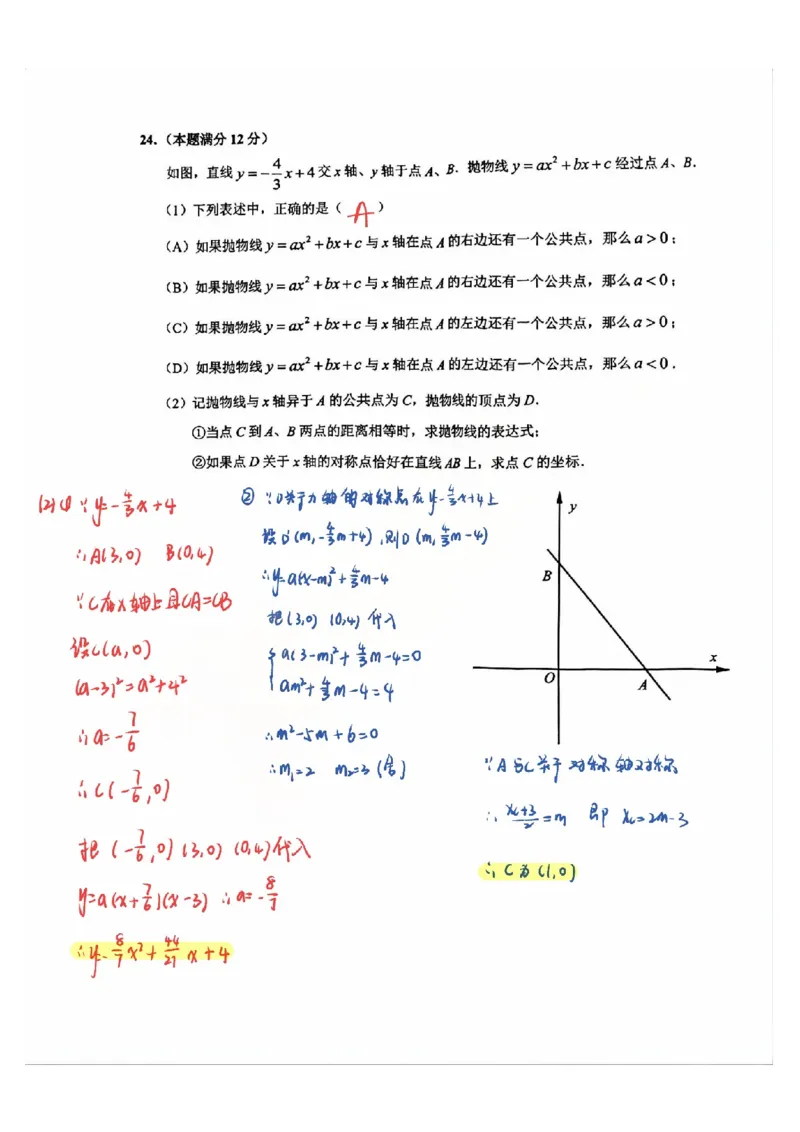 24.（本题满分12分）
如图，直线 y=-4/3x+4 交 x 轴、y 轴于点 A、B. 抛物线 y=ax²+bx+c 经过点 A、B.
（1）下列表述中，正确的是（ A ）
（A）如果抛物线 y=ax²+bx+c 与 x 轴在点 A 的右边还有一个公共点，那么 a>0；
（B）如果抛物线 y=ax²+bx+c 与 x 轴在点 A 的右边还有一个公共点，那么 a<0；
（C）如果抛物线 y=ax²+bx+c 与 x 轴在点 A 的左边还有一个公共点，那么 a>0；
（D）如果抛物线 y=ax²+bx+c 与 x 轴在点 A 的左边还有一个公共点，那么 a<0.
（2）记抛物线与 x 轴异于 A 的公共点为 C，抛物线的顶点为 D.
①当点 C 到 A、B 两点的距离相等时，求抛物线的表达式；
②如果点 D 关于 x 轴的对称点恰好在直线 AB 上，求点 C 的坐标.
(2)① ∵ y=-4/3x+4
∴A(3,0) B(0,4)
∵C在x轴上且CA=CB
设C(a,0)
(a-3)²=a²+4²
∴a=-7/6
∴C(-7/6,0)
把(-7/6,0)(3,0)(0,4)代入
y=a(x+7/6)(x-3) ∴a=-8/7
∴y=-8/7x²+44/21x+4
② ∵D关于x轴的对称点在y=-4/3x+4上
设D'(m,-4/3m+4),则D(m,4/3m-4)
∴y=a(x-m)²+4/3m-4
把(3,0)(0,4)代入
{a(3-m)²+4/3m-4=0
am²+4/3m-4=4
∴m²-5m+6=0
∴m₁=2 m₂=3(舍)
y
B
x
O
A
∵A与C关于对称轴对称
∴(xc+3)/2=m 即 xc=2m-3
∴C为(1,0)